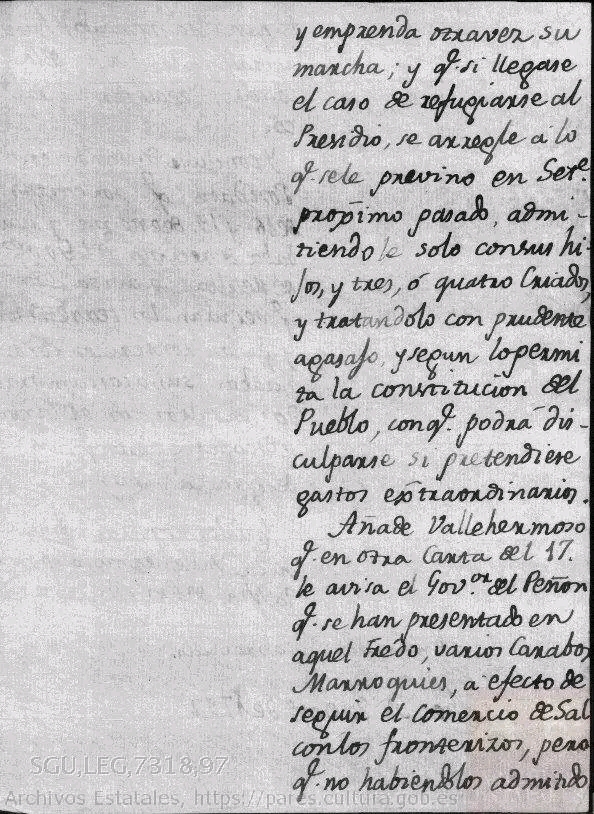 y emprenda otra vez su
marcha; y q.e si llegase
el caso de refugiarse al
Presidio, se arregle a lo
q.e se le previno en Set.e
proximo pasado, admi-
tiendole solo con sus hi-
jos, y tres, ó quatro Criados,
y tratandolo con prudente
agasajo, y segun lo permi
ta la constitucion del
Pueblo, con q.e podrá dis-
culparse si pretendiese
gastos extraordinarios.
Añade Vallehermoso
q.e en otra Carta del 17.
le avisa el Gov.or del Peñon
q.e se han presentado en
aquel Fredo, varios Carabos
Marroquies, a efecto de
seguir el comercio de Sal
con los fronterizos, pero
q.e no habiendolos admitido
SGU,LEG,7318,97
Archivos Estatales, https://pares.cultura.gob.es